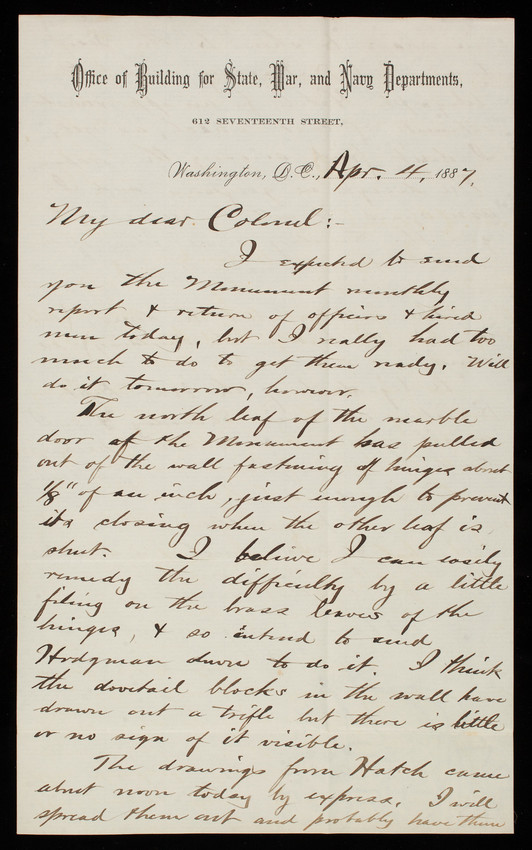 Office of Building for State, War, and Navy Departments,
612 SEVENTEENTH STREET,
Washington, D.C., Apr. 4, 1887.
My dear Colonel:-
I expected to send
you the Monument monthly
report & return of officers & hired
men today, but I really had too
much to do to get them ready. Will
do it tomorrow, however.
The north leaf of the marble
door of the Monument has pulled
out of the wall fastening of hinges about
1/8" of an inch, just enough to prevent
its closing when the other leaf is
shut. I believe I can easily
remedy the difficulty by a little
filing on the brass leaves of the
hinges, & so intend to send
Hodgman down to do it. I think
the dovetail blocks in the wall have
drawn out a trifle but there is little
or no sign of it visible.
The drawings from Hatch came
about noon today by express. I will
spread them out and probably have them